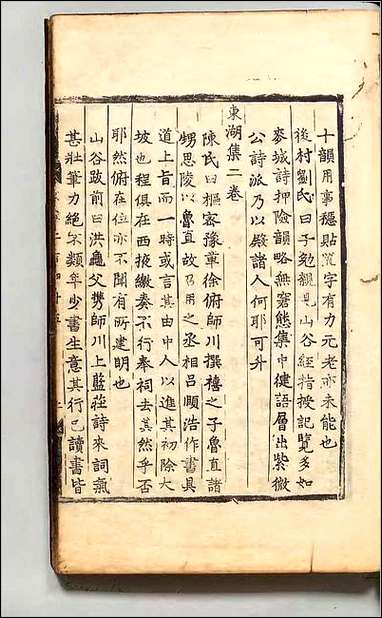 十韻用事穩貼置字有力元老亦未能也
後村劉氏曰子勉親見山谷經指授記覽多如
麥城詩押險韻略無窘態集中健語層出紫微
公詩派乃以殿諸人何耶可升
東湖集二卷
陳氏曰樞密豫章徐俯師川撰禧之子魯直諸
甥思陵以魯直故乃用之丞相呂頤浩作書具
道上旨而一時或言其由中人以進其初除大
坡也程俱在西掖繳奏不行奉祠去其然乎否
耶然俯在位亦不聞有所建明也
山谷跋前曰洪龜父攜師川上藍莊詩來詞氣
甚壯筆力絕不類年少書生意其行已讀書皆